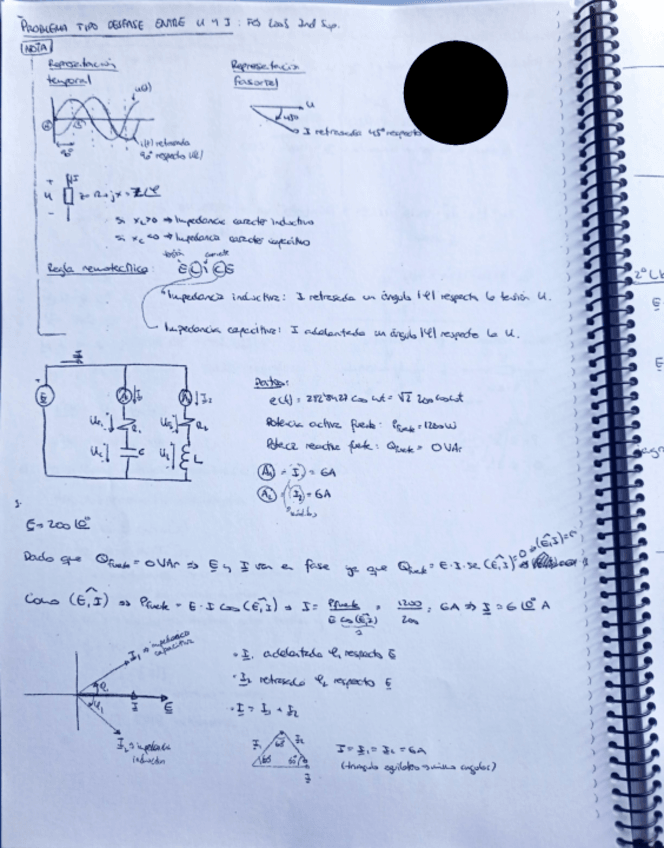 PROBLEMA TIPO DESFASE ENTRE U Y I:
NOTA
Representación temporal
Representación fasorial
u(t)
i(t) retrasada
90° respecto u(t)
90°
U
45°
I retrasada 45° respecto
+
U
-
I
Z = R + jX = Z∠φ
Si X >0 ⇒ Impedancia carácter inductivo
Si X <0 ⇒ Impedancia carácter capacitivo
tensión corriente
Regla nemotécnica: ELICE
Impedancia inductiva: I retrasada un ángulo |φ| respecto la tensión U.
Impedancia capacitiva: I adelantada un ángulo |φ| respecto la U.
I
E
A I1
A I2
R1
R2
C
L
Datos:
e(t) = 282'8427 cos wt = √2 200 cos wt
Potencia activa fuente: Pfuente = 1200 W
Potencia reactiva fuente: Qfuente = 0 VAr
A1 = I1 = 6A
A2 = I2 = 6A
E = 200 ∠0°
Dado que Qfuente = 0 VAr ⇒ E y I van en fase ya que Qfuente = E·I·sen (E,I) = 0 ⇒ (E,I) = 0
Como (E,I) ⇒ Pfuente = E·I cos(E,I) ⇒ I = Pfuente / E cos(E,I) = 1200 / 200 = 6A ⇒ I = 6 ∠0° A
1
I1 ⇒ impedancia capacitiva
I
E
I2 ⇒ impedancia inductiva
· I1 adelantada φ1 respecto E
· I2 retrasada φ2 respecto E
· I = I1 + I2
I1 60° I2
60° 60°
I
I = I1 = I2 = 6A
(triángulo equilátero ⇒ mismos ángulos)